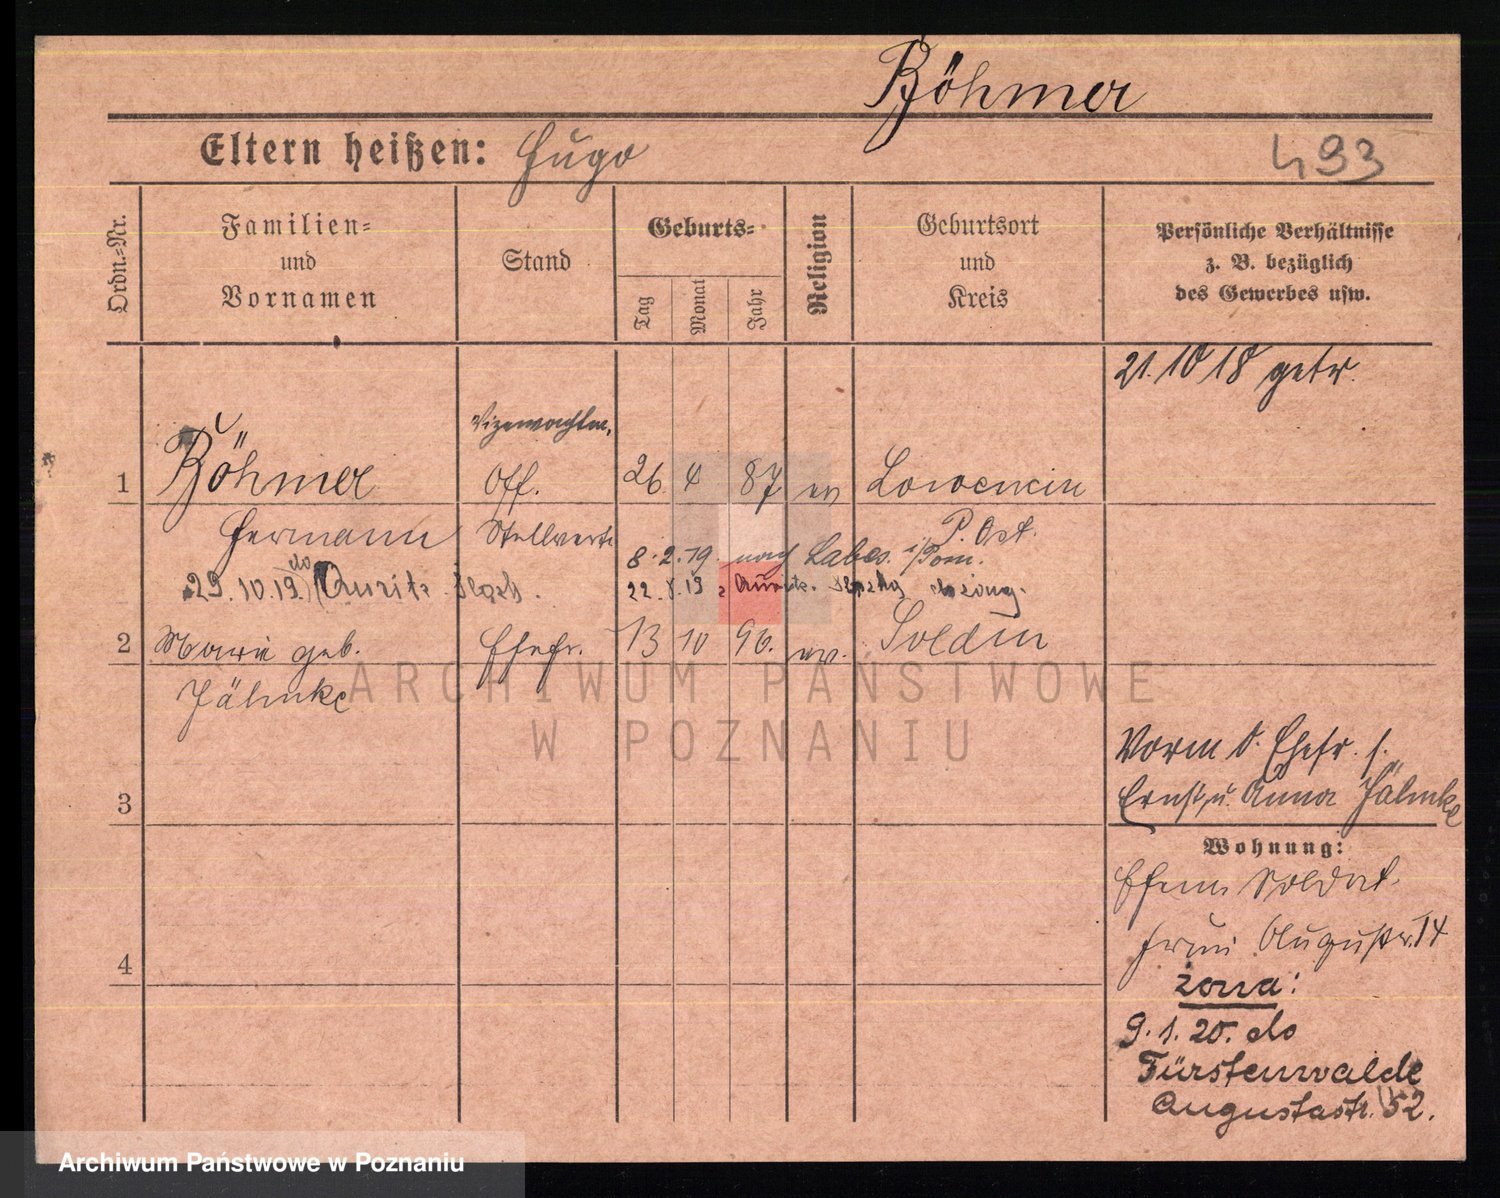 Böhmer
Eltern heißen: Hugo
493
Ordn.-Nr.
Familien-
und
Vornamen
Stand
Geburts-
Tag
Monat
Jahr
Religion
Geburtsort
und
Kreis
Persönliche Verhältnisse
z. B. bezüglich
des Gewerbes usw.
21.10 18 getr.
Vizewachtm.
1 Böhmer Off. 26 4 87 ev Lowencin
Hermann Stellvertr P. Ost.
8.2.19. nach Labes i/Pom.
29.10.19. do Auritz
22.8.19
2 Marie geb. Ehefr. 13 10 96. ev. Soldin
Jähnke
ARCHIWUM PAŃSTWOWE
W POZNANIU
Vorm d. Ehefr. s.
Ernst u. Anna Jähnke
3
Wohnung:
Ehem Soldat
Frau Augustr. 14
4
żona:
9.1.20. do
Fürstenwalde
Augustastr. 52.
Archiwum Państwowe w Poznaniu